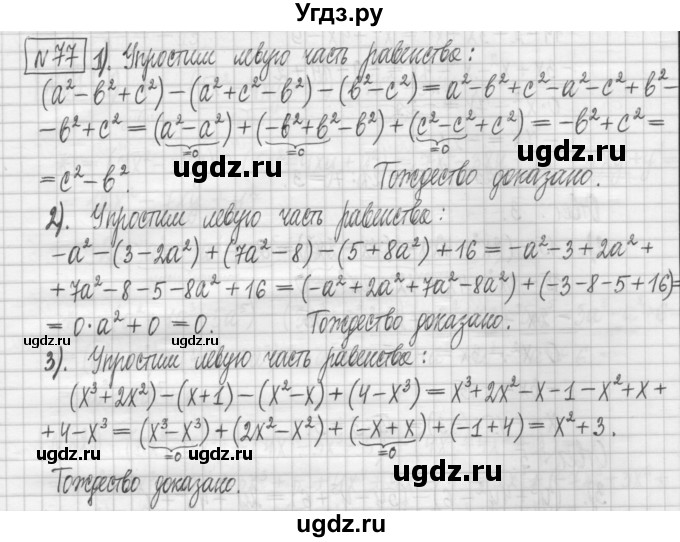 Угдз.ру
№77 1). Упростим левую часть равенства:
(a²-в²+c²)-(a²+c²-в²)-(в²-c²)=a²-в²+c²-a²-c²+в²-
-в²+c²=(a²-a²)+(-в²+в²-в²)+(c²-c²+c²)=-в²+c²=
=0 =0 =0
ugdz.ru ugdz.ru ugdz.ru
=c²-в². Тождество доказано.
2). Упростим левую часть равенства:
-a²-(3-2a²)+(7a²-8)-(5+8a²)+16=-a²-3+2a²+
+7a²-8-5-8a²+16=(-a²+2a²+7a²-8a²)+(-3-8-5+16)=
=0·a²+0=0. Тождество доказано.
ugdz.ru ugdz.ru
3). Упростим левую часть равенства:
(x³+2x²)-(x+1)-(x²-x)+(4-x³)=x³+2x²-x-1-x²+x+
+4-x³=(x³-x³)+(2x²-x²)+(-x+x)+(-1+4)=x²+3.
=0 =0
ugdz.ru ugdz.ru ugdz.ru
Тождество доказано.
ugdz.ru